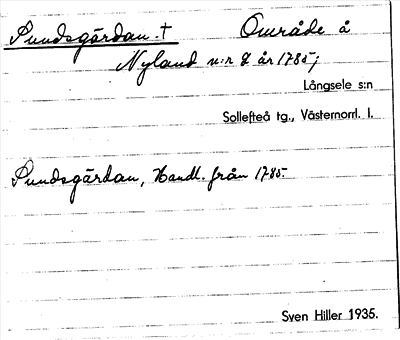 Sundsgårdan. † Område å
Nyland n:r 2 år 1785;
Långsele s:n
Sollefteå tg., Västernorrl. l.
Sundsgårdan, Handl. från 1785.
Sven Hiller 1935.